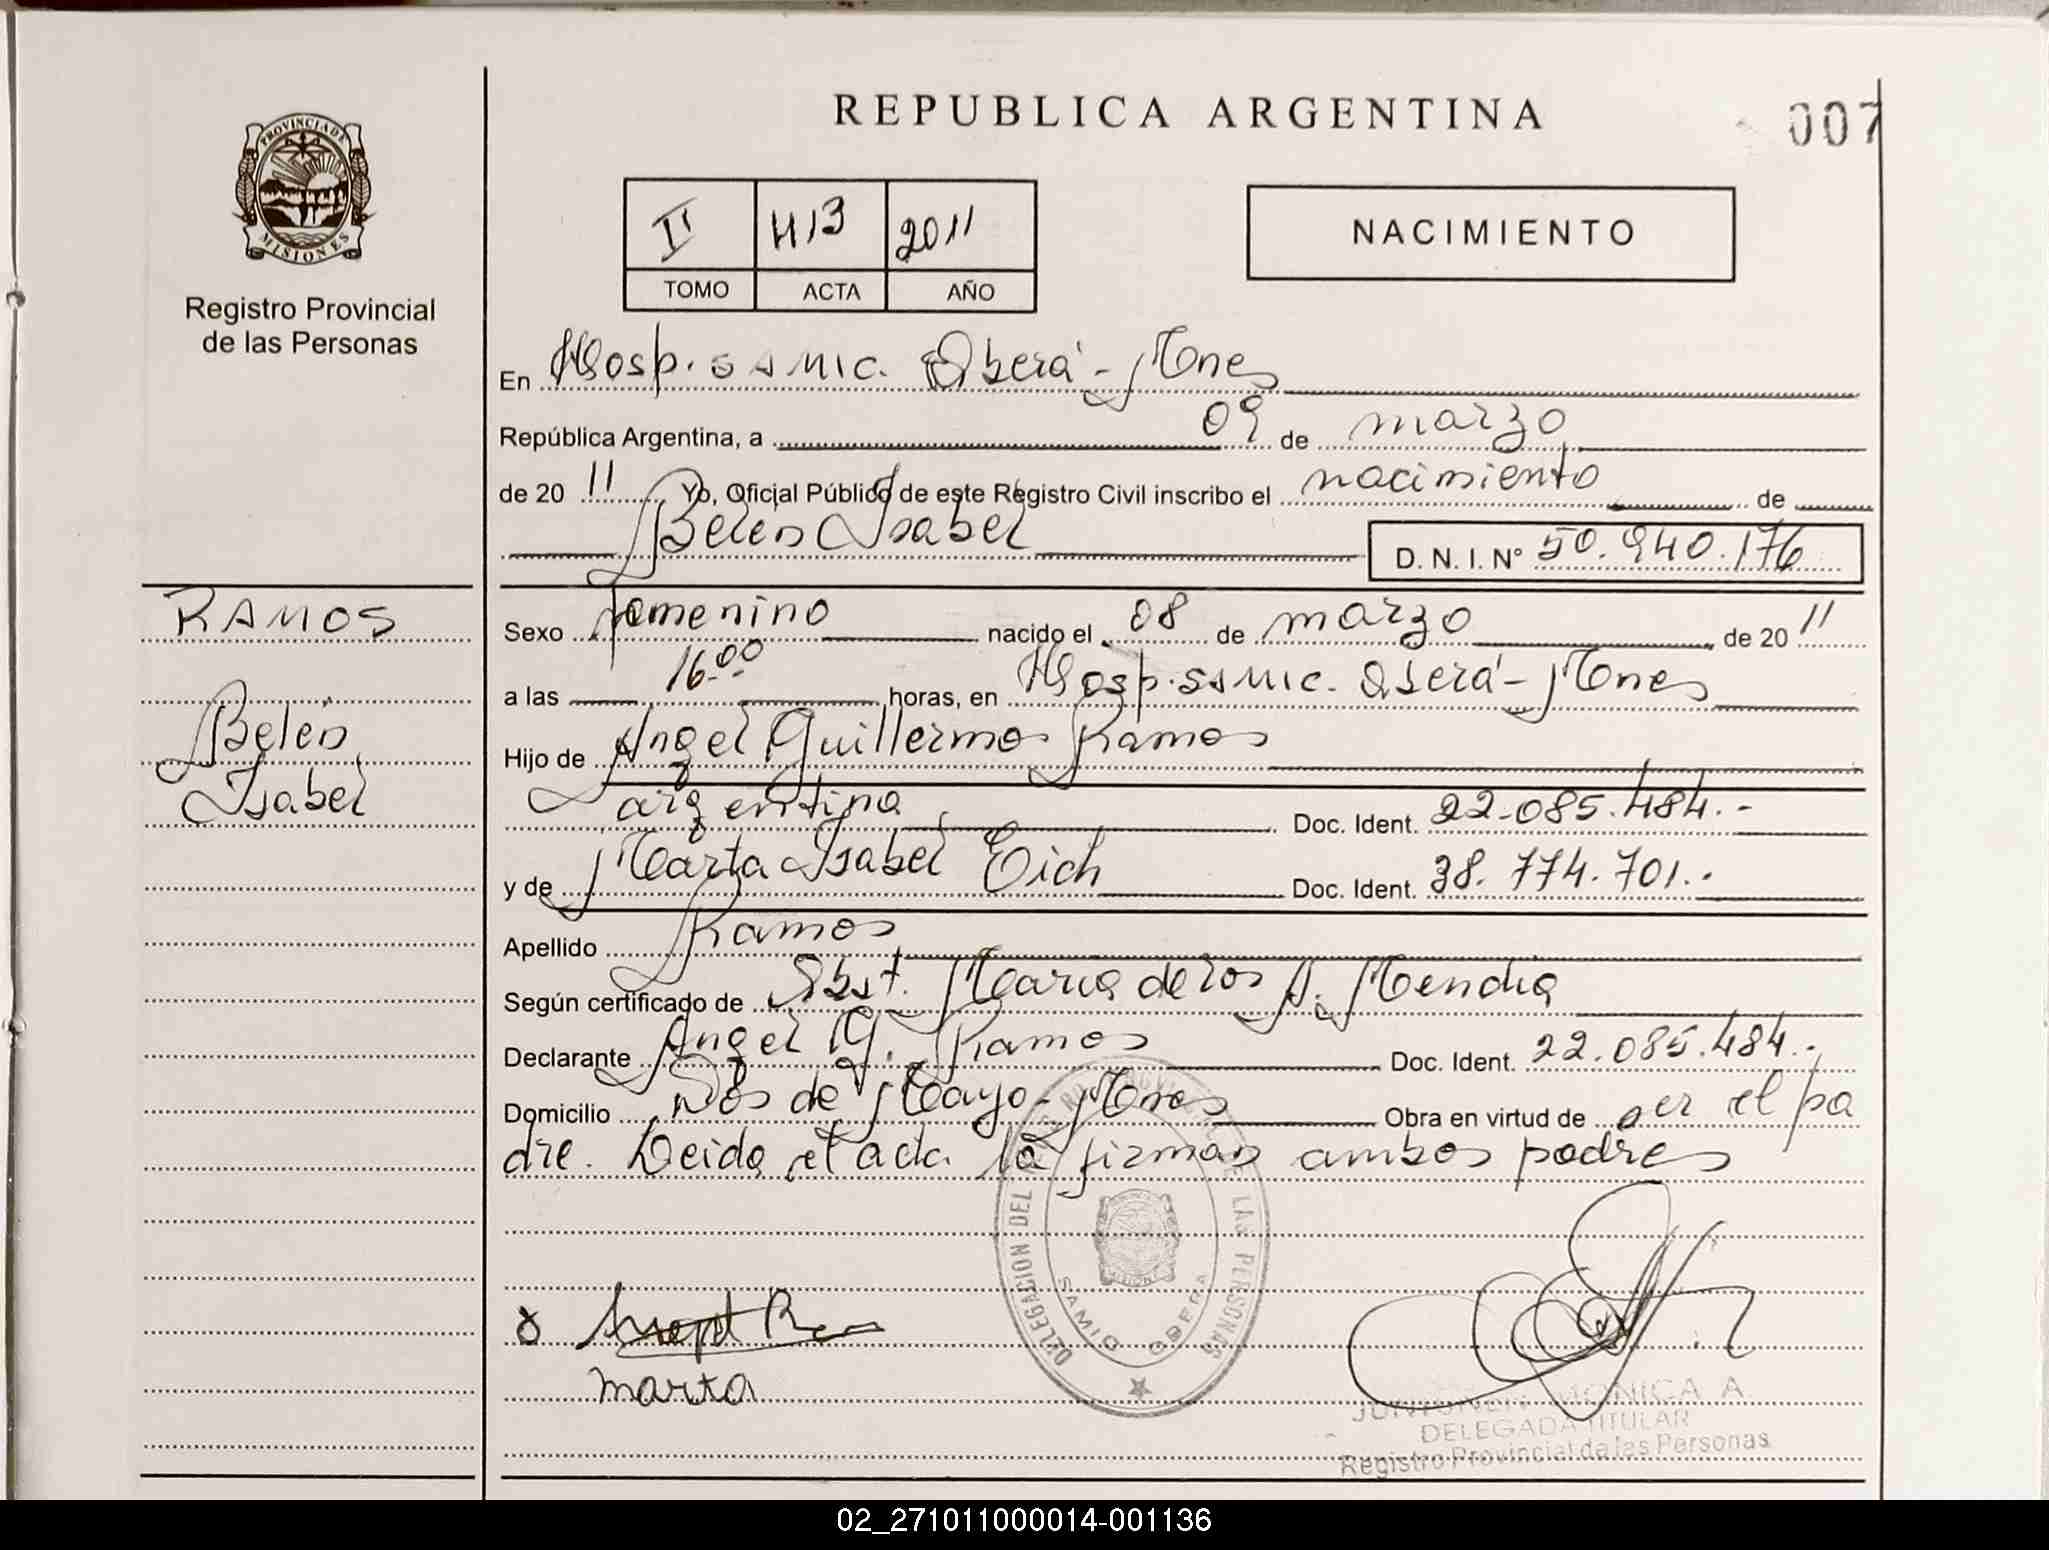 REPUBLICA ARGENTINA
007
PROVINCIA DE
MISIONES
Registro Provincial
de las Personas
II 413 2011
TOMO ACTA AÑO
NACIMIENTO
En Hosp. SAMIC. Oberá - Mnes
República Argentina, a 09 de marzo
de 20 11 Yo, Oficial Público de este Registro Civil inscribo el nacimiento de
Belén Isabel D. N. I. N° 50.940.176
RAMOS
Belén
Isabel
Sexo femenino nacido el 08 de marzo de 20 11
a las 16.00 horas, en Hosp. SAMIC. Oberá - Mnes
Hijo de Angel Guillermo Ramos
argentino Doc. Ident. 22.085.484.-
y de Marta Isabel Eich Doc. Ident. 38.774.701.-
Apellido Ramos
Según certificado de Obst. María de los A. Mendia
Declarante Angel G. Ramos Doc. Ident. 22.085.484.-
Domicilio Dos de Mayo - Mnes Obra en virtud de ser el pa
dre. Leida el acta la firman ambos padres
DELEGACION DEL REG. PROVINCIAL DE LAS PERSONAS
SAMIC OBERA
MISIONES
marta
MONICA A
DELEGADA TITULAR
Registro Provincial de las Personas
02_271011000014-001136